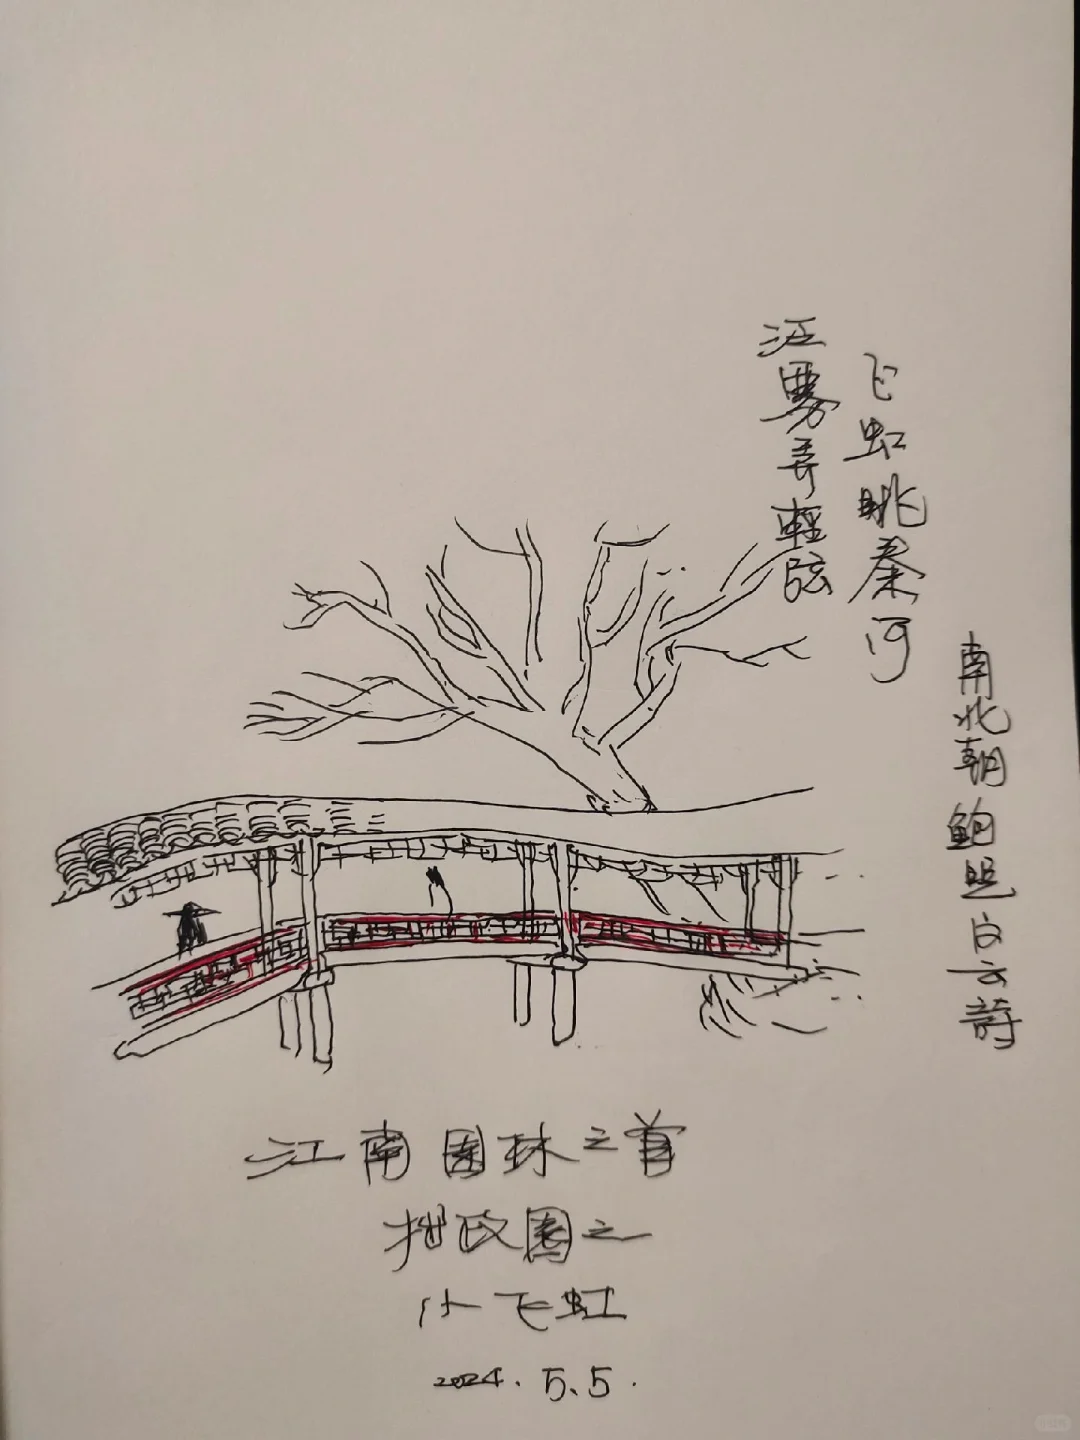 南北朝鲍照白云詩
飞虹眺秦河
泛雾弄輕弦
江南園林之首
拙政園之
小飞虹
2024.5.5.